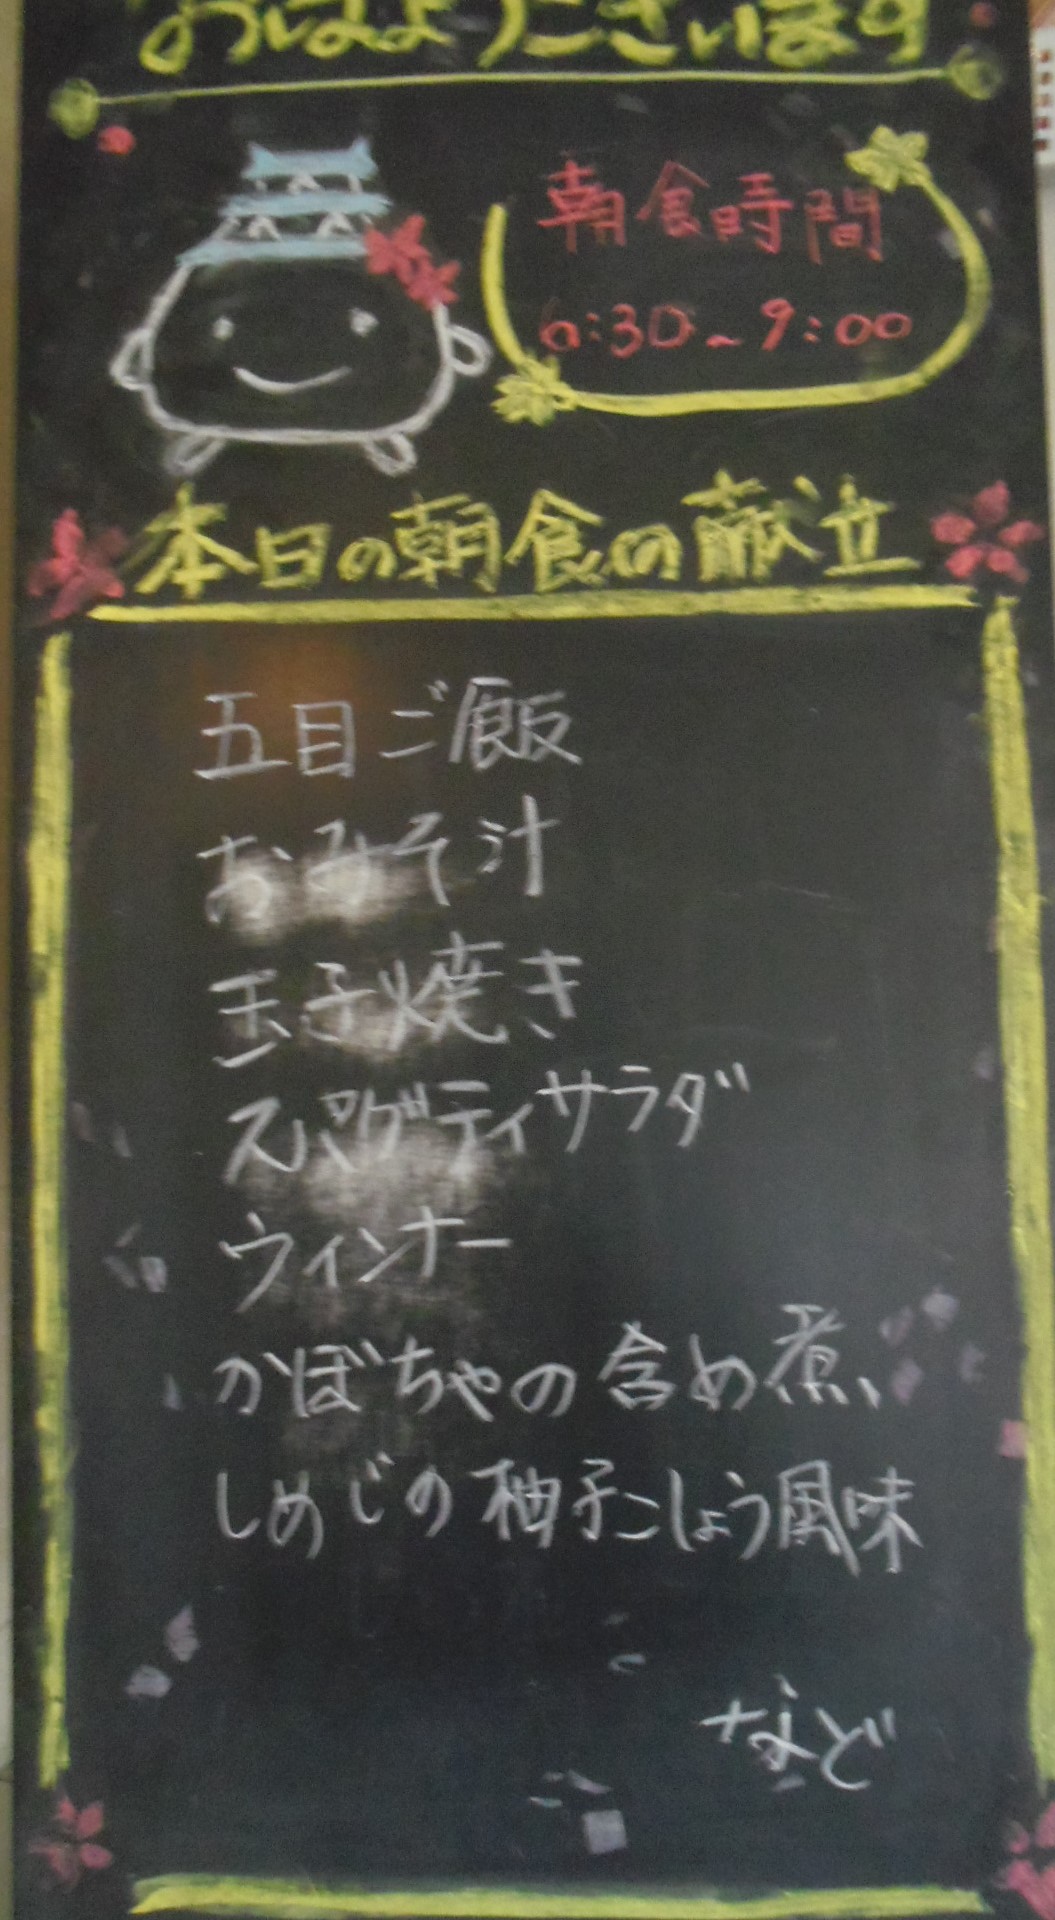 おはようございます
朝食時間
6:30~9:00
本日の朝食の献立
五目ご飯
おみそ汁
玉子焼き
スパゲティサラダ
ウィンナー
かぼちゃの含め煮
しめじの柚子こしょう風味
など